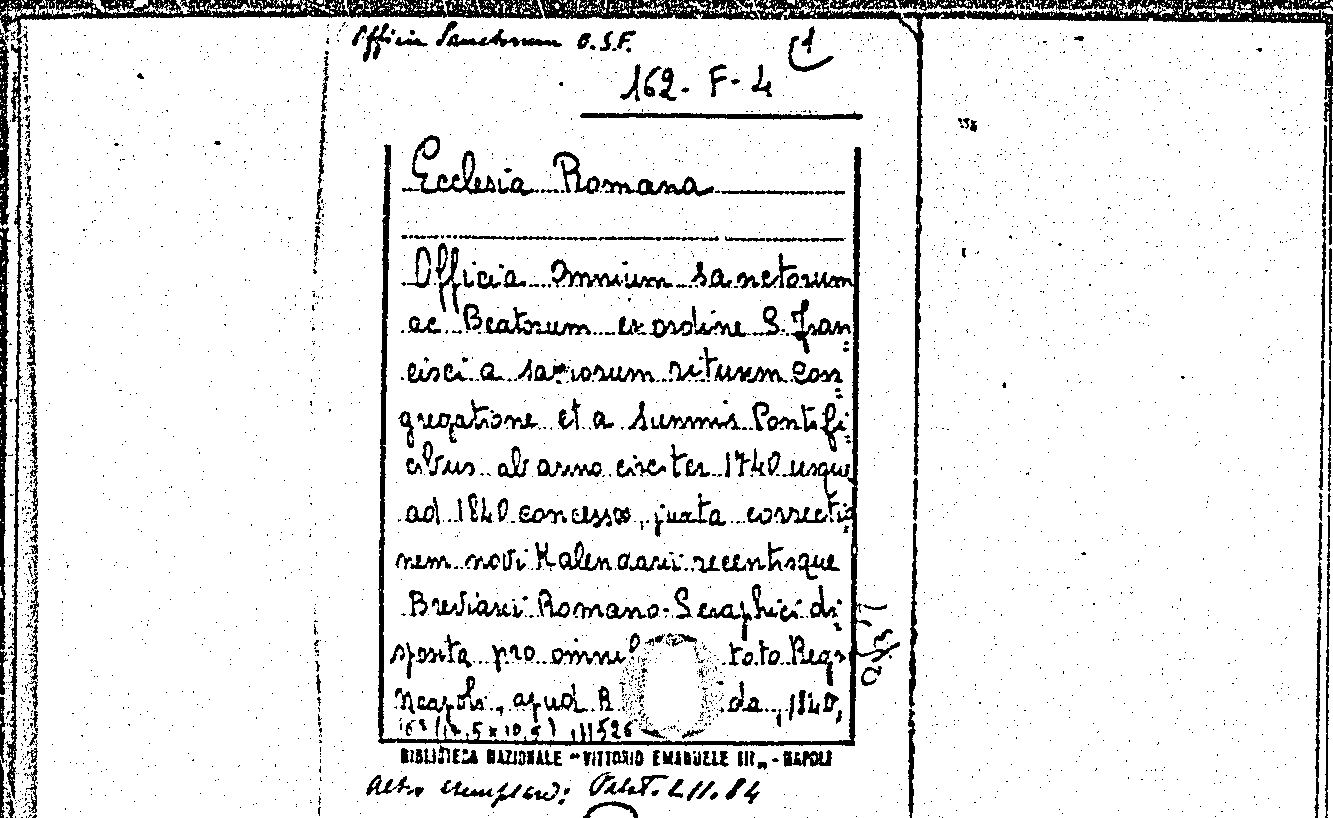 Officia Sanctorum O.S.F.
(1
162- F- 4
Ecclesia Romana
Officia Omnium Sanctorum
ac Beatorum ex ordine S. Fran=
cisci a sacrorum rituum Con=
gregatione et a Summis Pontifi=
cibus ab anno circiter 1740 usque
ad 1840 concessa, juxta correctio=
nem novi Kalendarii recentisque
Breviarii Romano-Seraphici di=
sposita pro toto Regno
Neapoli, apud da, 1840,
BIBLIOTECA NAZIONALE "VITTORIO EMANUELE III" - NAPOLI
Altro esemplare: